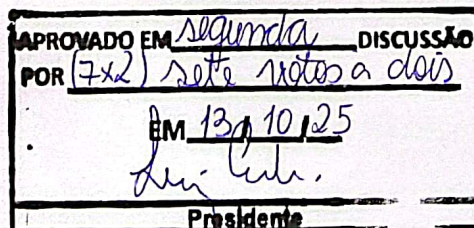 APROVADO EM segunda DISCUSSÃO
POR (7x2) sete votos a dois
EM 13 / 10 / 25
Presidente